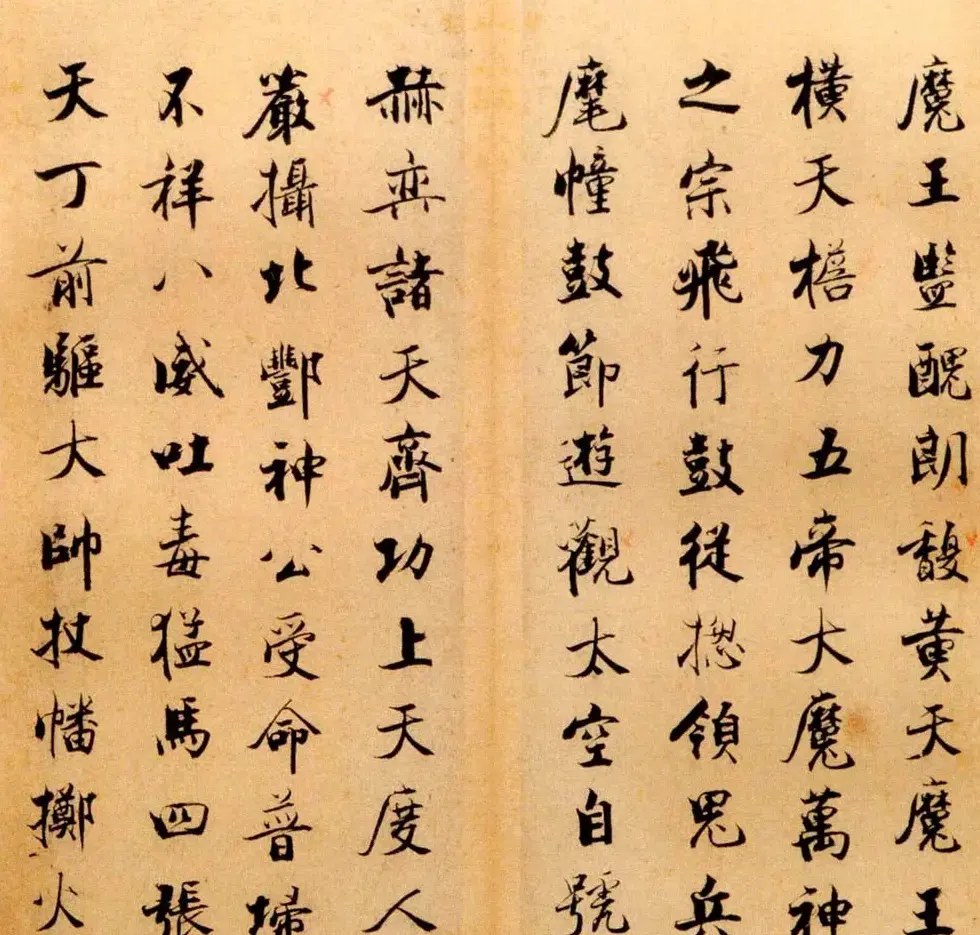 魔王監醜朗馥黃天魔王
橫天檐力五帝大魔萬神
之宗飛行鼓從揔領鬼兵
麾幢鼓節遊觀太空自號
赫弈諸天齊功上天度人
嚴攝北酆神公受命普掃
不祥八威吐毒猛馬四張
天丁前驅大帥扙幡擲火